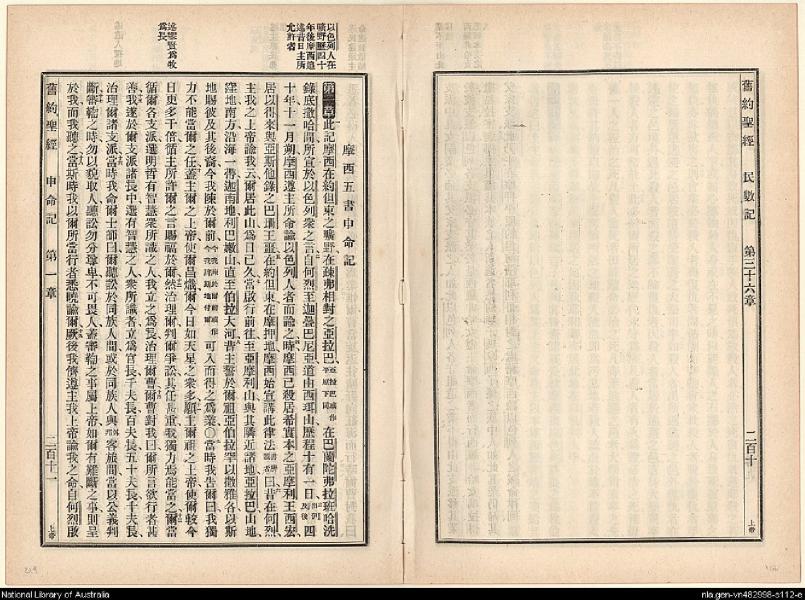 舊約聖經 民數記 第三十六章 二百十 上帝
以色列人在
曠野歷四十
年後摩西追
述昔日主所
允許者
爲長
摩西五書申命記
第一章此記摩西在約但東之曠野在疏弗相對之亞拉巴 在巴蘭陀弗拉班哈洗
錄底撒哈間所宣於以色列衆之言自何烈至迦疊巴尼亞道由西珥山歷程十有一日 四
十年十一月朔摩西遵主所命諭以色列人者而諭之時摩西已殺居希實本之亞摩利王西宏
居以得來與亞斯他錄之巴珊王噩在約但東在摩押地摩西始宣講此律法 曰昔在何烈
主我之上帝諭我云爾居此山爲日已久當啟行前往至亞摩利山與其隣近諸地亞拉巴山地
窪地南方沿海一帶迦南地利巴嫩山直至伯拉大河昔主誓於爾祖亞伯拉罕以撒雅各以斯
地賜彼及其後裔今我陳於爾前 可入而得之爲業○當時我告爾曰我獨
力不能當爾之任蓋主爾之上帝使爾昌熾爾今日如天星之衆多願主爾祖之上帝使爾較今
日更多千倍循主所許爾之言賜福於爾然治理爾判爾爭訟其任綦重我獨力焉能當之爾當
循爾各支派選明哲有智慧衆所識之人我立之爲長治理爾曹爾曹對我曰爾所言欲行者甚
善我遂於爾支派諸長中選有智慧之人衆所識者立爲官長千夫長百夫長五十夫長十夫長
治理爾諸支派當時我命爾士師曰爾聽訟於同族人間或於同族人與 客旅間當以公義判
斷審鞫之時勿以貌取人聽訟勿分尊卑不可畏人蓋審鞫之事屬上帝如爾有難斷之事則呈
於我而我聽之當斯時我以爾所當行者悉曉諭爾厥後我儕遵主我上帝諭我之命自何烈啟
舊約聖經 申命記 第一章 二百十一 上帝
National Library of Australia
nla.gen-vn482998-s112-e